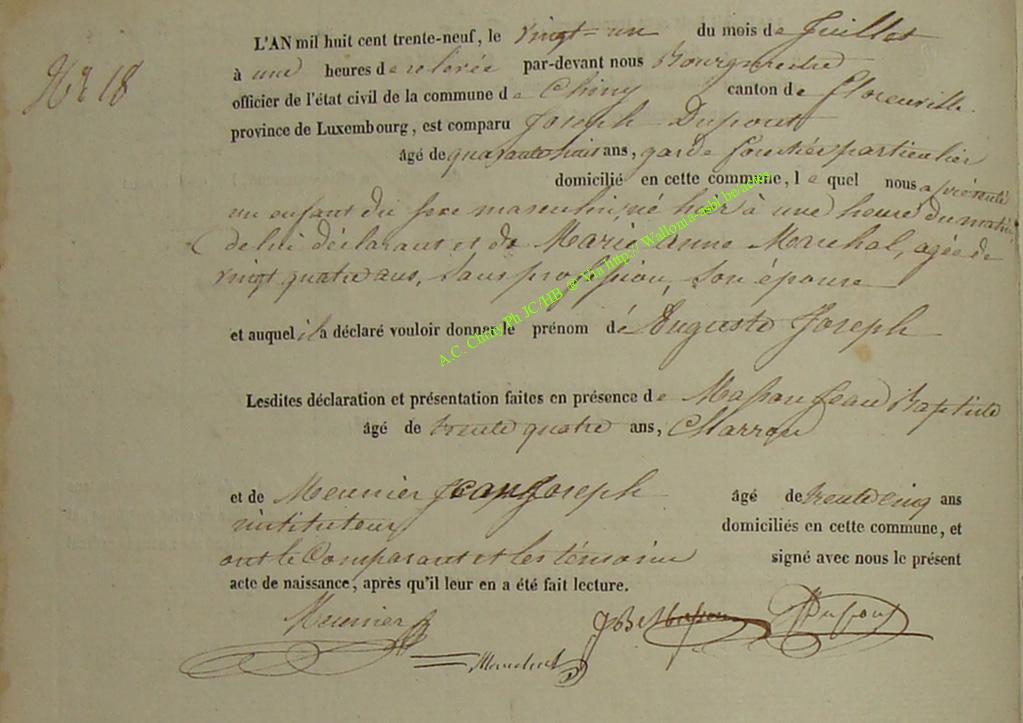 L'AN mil huit cent trente-neuf, le vingt-un du mois de Juillet
N° 18
à une heures de relevée par-devant nous Bourgmestre
officier de l'état civil de la commune de Chiny canton de Florenville
province de Luxembourg, est comparu Joseph Dupont
âgé de quarante huit ans, garde forestier particulier
domicilié en cette commune, le quel nous a présenté
un enfant du sexe masculin né hier à une heure du matin
de lui déclarant et de Marie Anne Maréchal, agée de
vingt quatre ans, sans profession, son épouse
et auquel il a déclaré vouloir donner le prénom de Auguste Joseph
Lesdites déclaration et présentation faites en présence de Masson Jean Baptiste
âgé de trente quatre ans,
et de Meunier Jean Joseph âgé de trente cinq ans
instituteur domiciliés en cette commune, et
ont le Comparant et les témoins signé avec nous le présent
acte de naissance, après qu'il leur en a été fait lecture.
Meunier JB Masson Dupont
A.C. Chiny Ph JC/HB @ Via http:// Wallonia-asbl.be/actes